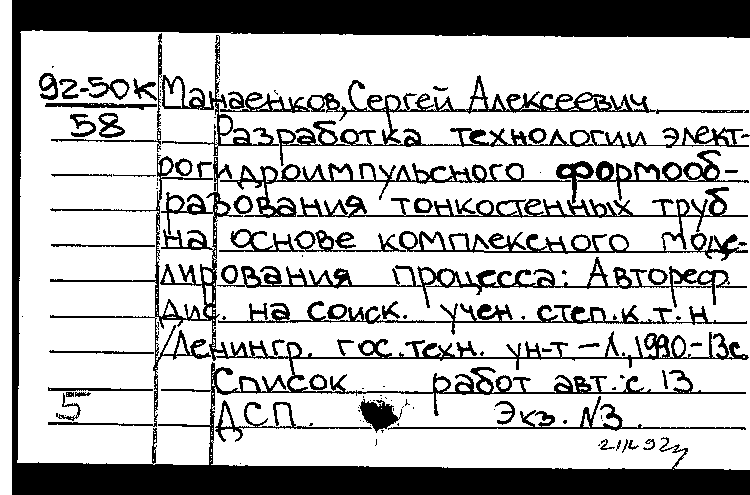 92-50к Манаенков, Сергей Алексеевич
58 Разработка технологии элект-
рогидроимпульсного формооб-
разования тонкостенных труб
на основе комплексного моде-
лирования процесса: Автореф.
Дис. на соиск. учен. степ. к. т. н.
/Ленингр. гос. техн. ун-т – Л., 1990.-13с
Список работ авт.: с. 13.
5 ДСП. Экз. N3.